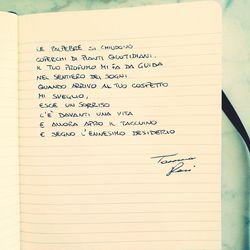 LE PALPEBRE SI CHIUDONO
COPERCHI DI PIANTI QUOTIDIANI.
IL TUO PROFUMO MI FA DA GUIDA
NEL SENTIERO DEI SOGNI
QUANDO ARRIVO AL TUO COSPETTO
MI SVEGLIO,
ESCE UN SORRISO
C'È DAVANTI UNA VITA
E ANCORA APRO IL TACCUINO
E SEGNO L'ENNESIMO DESIDERIO